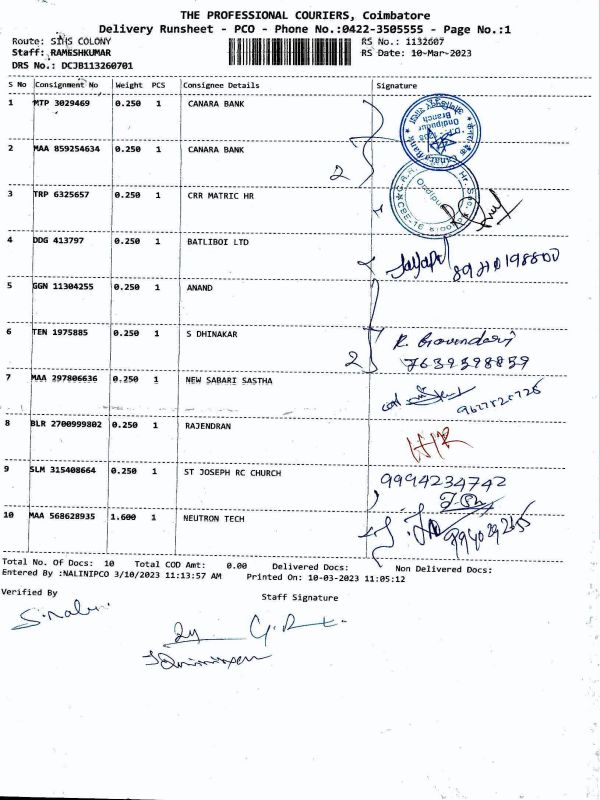 THE PROFESSIONAL COURIERS, Coimbatore
Delivery Runsheet - PCO - Phone No.:0422-3505555 - Page No.:1
Route: SIHS COLONY RS No.: 1132607
Staff: RAMESHKUMAR RS Date: 10-Mar-2023
DRS No.: DCJB113260701
S No Consignment No Weight PCS Consignee Details Signature
1 MTP 3029469 0.250 1 CANARA BANK
2 MAA 859254634 0.250 1 CANARA BANK
2
3 TRP 6325657 0.250 1 CRR MATRIC HR
4 DDG 413797 0.250 1 BATLIBOI LTD
5 GGN 11304255 0.250 1 ANAND
6 TEN 1975885 0.250 1 S DHINAKAR
2 7639598859
7 MAA 297806636 0.250 1 NEW SABARI SASTHA
8 BLR 2700999802 0.250 1 RAJENDRAN
9 SLM 315408664 0.250 1 ST JOSEPH RC CHURCH
9994234742
10 MAA 568628935 1.600 1 NEUTRON TECH
Total No. Of Docs: 10 Total COD Amt: 0.00 Delivered Docs: Non Delivered Docs:
Entered By :NALINIPCO 3/10/2023 11:13:57 AM Printed On: 10-03-2023 11:05:12
Verified By Staff Signature